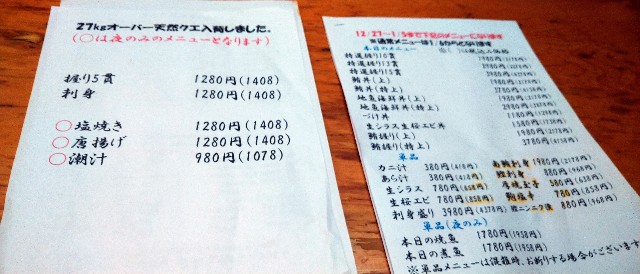 27kgオーバー天然クエ入荷しました。
(○は夜のみのメニューとなります)
握り5貫 1280円(1408)
刺身 1280円(1408)
○塩焼き 1280円(1408)
○唐揚げ 1280円(1408)
○潮汁 980円(1078)
12/27〜1/5まで下記のメニューになります
※通常メニューは1/6からとなります
本日のメニュー
特選握り10貫
特選握り13貫
特選握り15貫
鮪丼(上)
鮪丼(特上) 3780円
地魚海鮮丼(上)
地魚海鮮丼(特上)
づけ丼
生シラス生桜エビ丼 1580円
鮪握り(上)
鮪握り(特上) 3780円
単品
カニ汁 380円(418円)
あら汁 380円(418円)
生シラス 780円(858円)
生桜エビ 780円(858円)
刺身盛り 3980円(4378円)
刺身 1980円(2178円)
厚焼玉子 580円(638円)
780円(858円)
880円(968円)
単品(夜のみ)
本日の焼魚 1780円(1958円)
本日の煮魚 1780円(1958円)
※単品メニューは混雑時、お断りする場合がございます